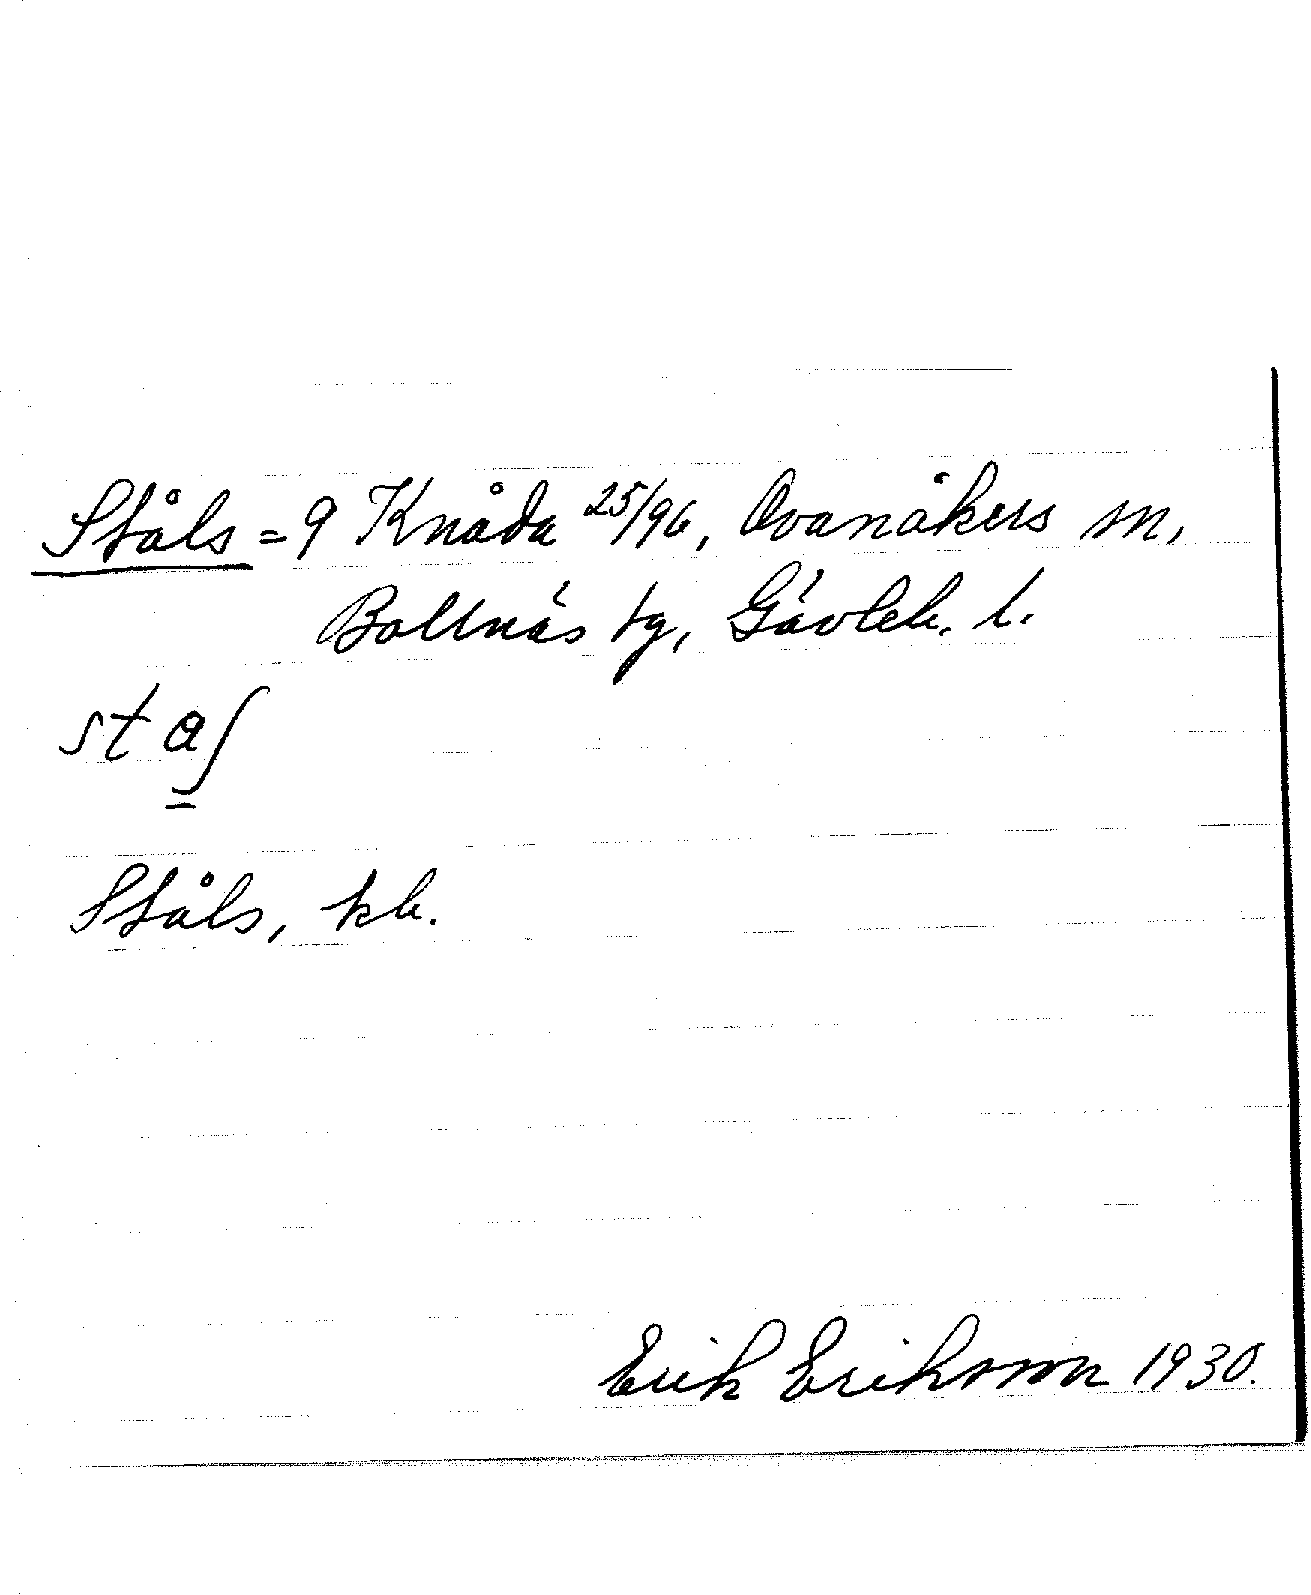 Ståls = 9 Knåda 25/96, Ovanåkers sn,
Bollnäs tg, Gävleb. l.
Ståls, kb.
Erik Eriksson 1930.